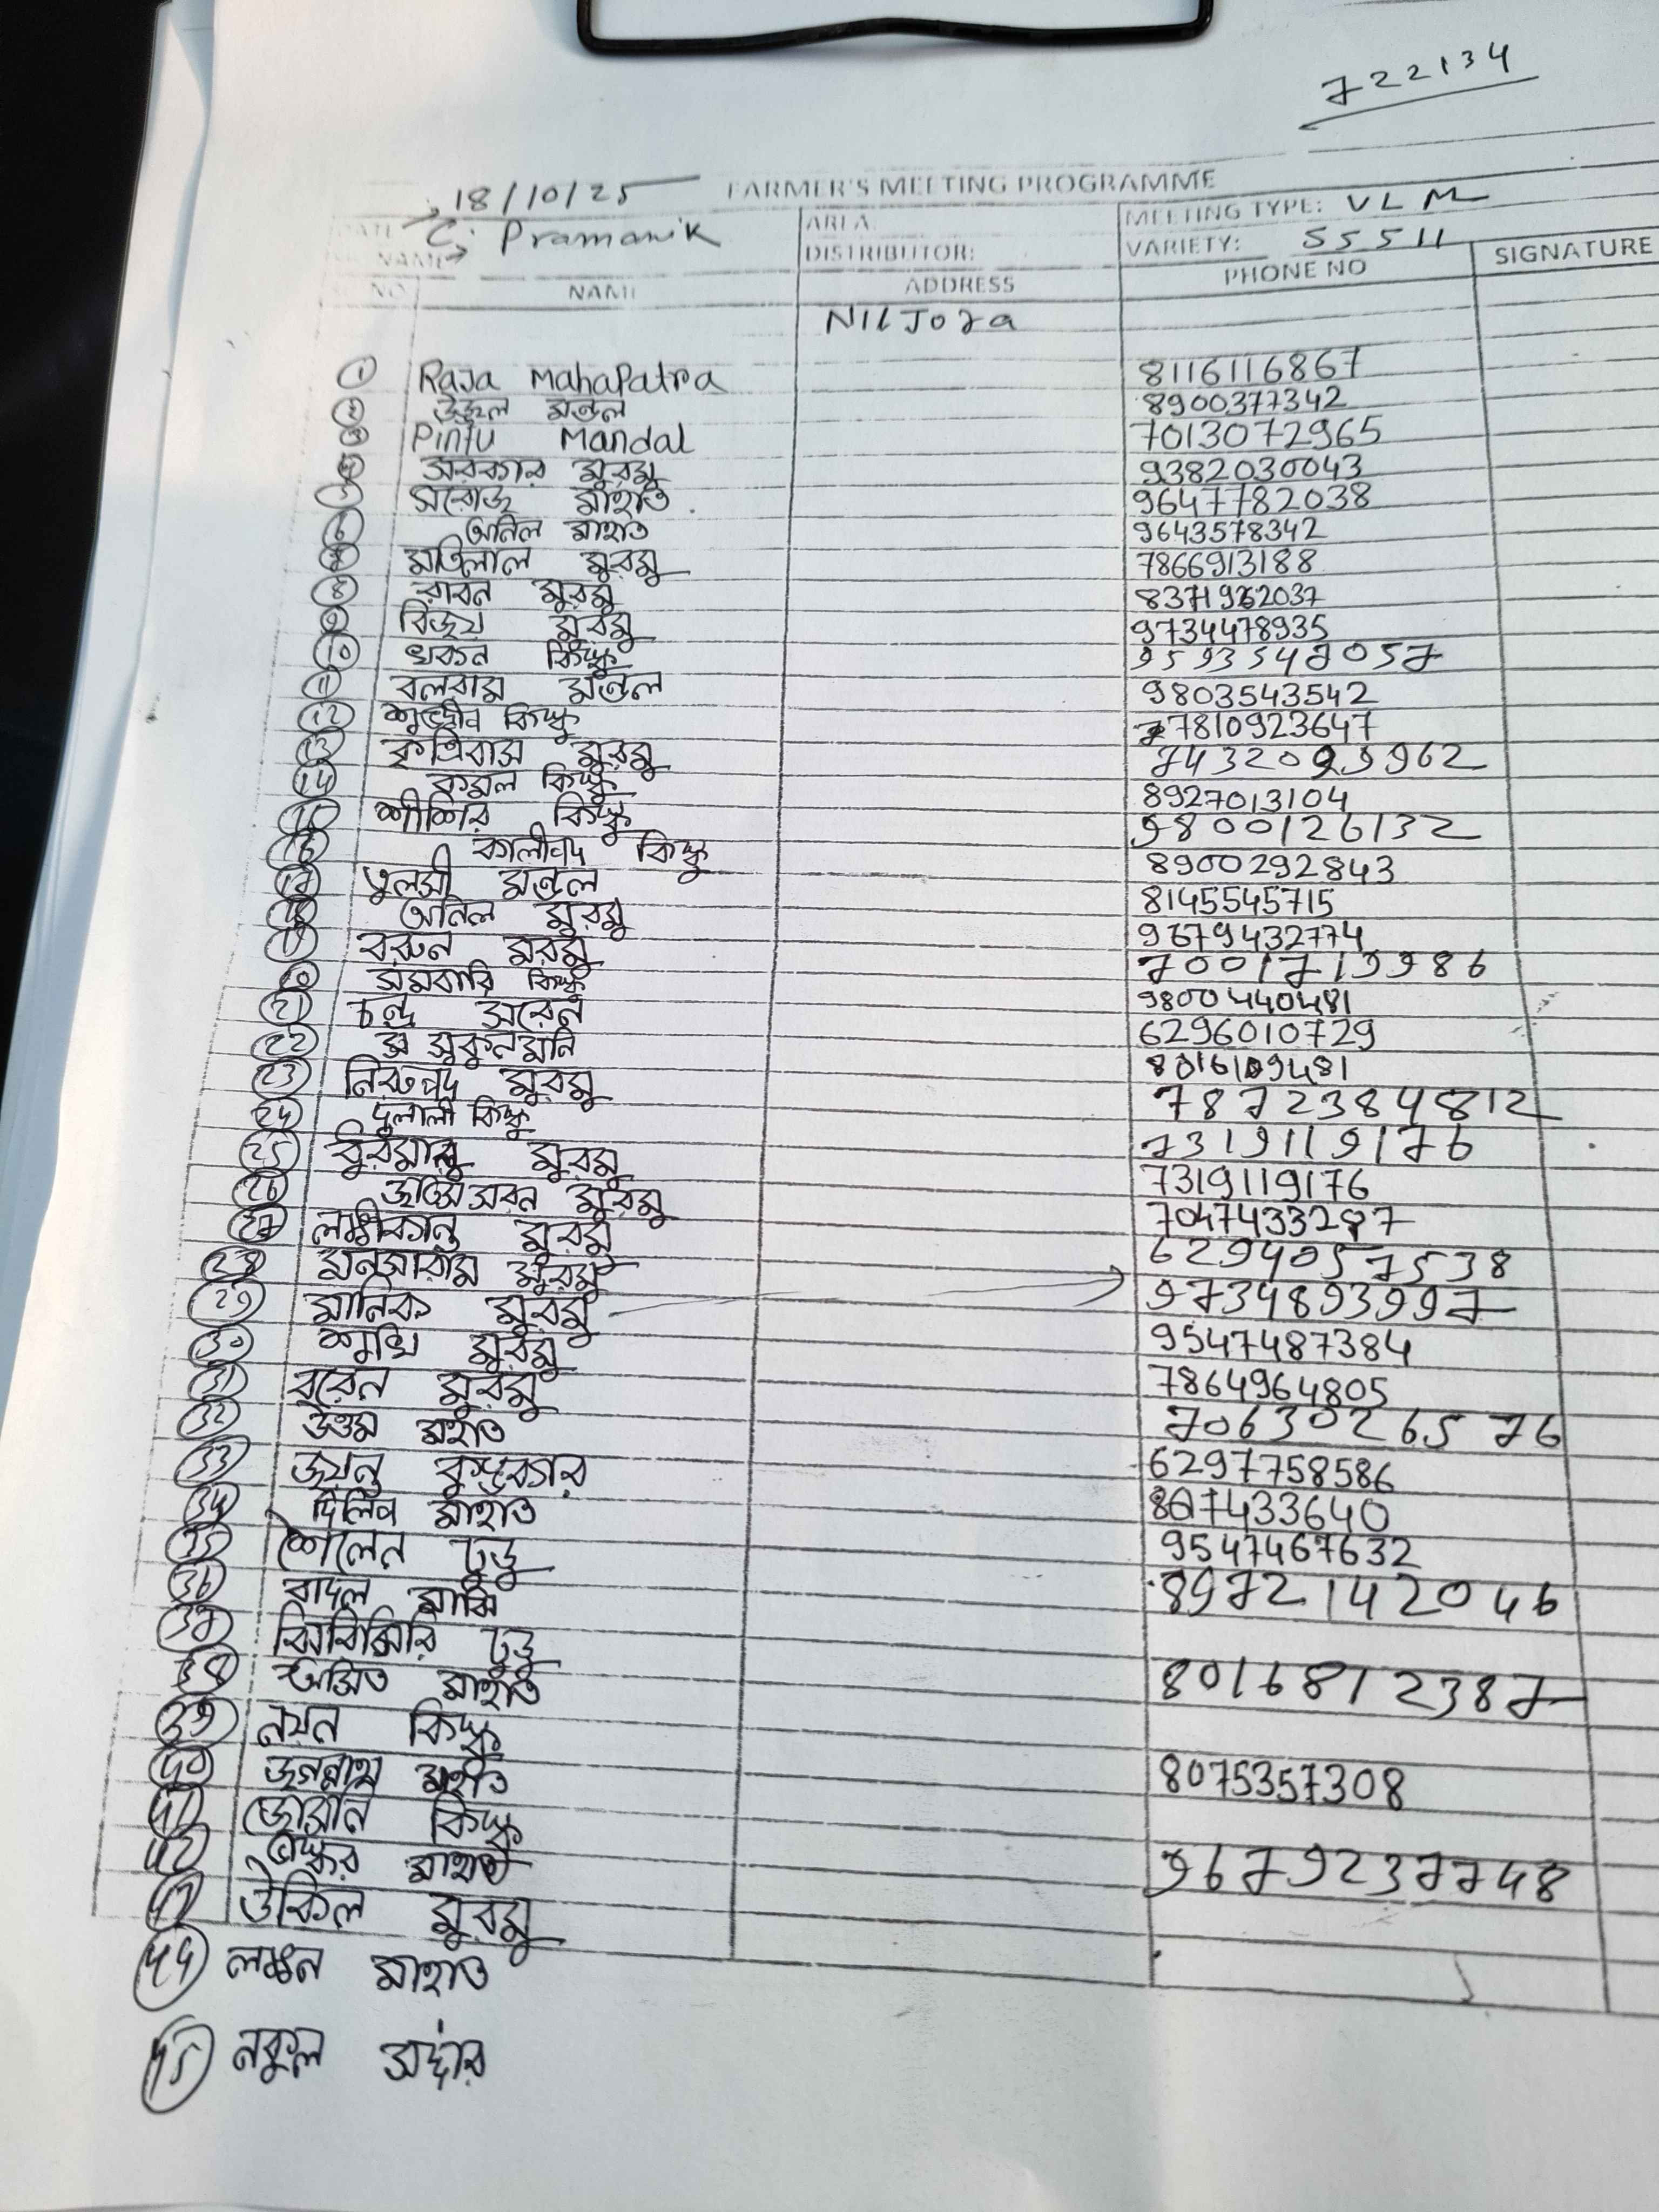 722134
FARMER'S MEETING PROGRAMME
DATE 18/10/25 AREA: MEETING TYPE: VLM
NAME C. Pramanik DISTRIBUTOR: VARIETY: 55511
NO NAME ADDRESS PHONE NO SIGNATURE
NilJora
1 Raja MahaPatra 8116116867
2 উজ্জ্বল মন্ডল 8900377342
3 Pintu Mandal 7013072965
4 সরকার মুরমু 9382030043
5 সরোজ মাহাত 9647782038
6 অনিল মাহাত 9643578342
7 মতিলাল মুরমু 7866913188
8 রাবন মুরমু
9 বিজয় মুরমু 9734478935
10 খকন কিস্কু 9593547057
11 বলরাম মন্ডল 9803543542
12 কিস্কু 7810923647
13 কৃত্তিবাস মুরমু 7432099962
14 কমল কিস্কু 8927013104
15 শীশির কিস্কু 9800126132
16 কালীপদ কিস্কু 8900292843
17 তুলসী মন্ডল 8145545715
18 অনিল মুরমু 9679432774
19 বরুন মরমু 7001719986
20 সমবারি কিস্কু 9800440481
21 চন্দ্র সরেন 6296010729
22 সুকুলমনি
23 নিরুপদ মুরমু 7872384812
24 দুলালী কিস্কু 7319119176
25 মুরমু 7319119176
26 মুরমু
27 লক্ষীকান্ত মুরমু 6294057538
28 মনসারাম মুরমু
29 মানিক মুরমু 9734893997
30 মুরমু 9547487384
31 বরেন মুরমু 7864964805
32 উত্তম মহাত 7063026576
33 জয়ন্ত কুম্ভকার 6297758586
34 দিলিপ মাহাত
35 শৈলেন টুডু 9547467632
36 বাদল মাঝি 8972142046
37 ঝিরিঝিরি টুডু
38 অসিত মাহাত 8016812387
39 নয়ন কিস্কু
40 জগন্নাথ মহাত 8075357308
41 কিস্কু
42 ভাস্কর মাহাত 9679237748
43 উকিল মুরমু
44 লক্ষন মাহাত
45 নকুল সর্দ্দার